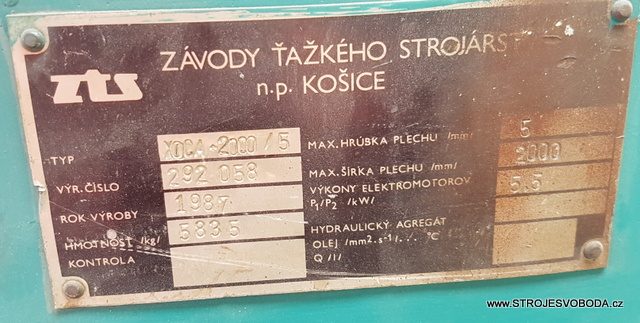 zts
ZÁVODY ŤAŽKÉHO
n.p. KOŠICE
TYP XOCA-2000/5
VÝR. ČÍSLO 292 058
ROK VÝROBY 1987
HMOTNOSŤ /kg/ 5835
KONTROLA
MAX. HRÚBKA PLECHU /mm/ 5
MAX. ŠÍRKA PLECHU /mm/ 2000
VÝKONY ELEKTROMOTOROV
P₁/P₂ /kW/ 5.5
HYDRAULICKÝ AGREGÁT
OLEJ /mm².s⁻¹/... °C
Q /l/
www.STROJESVOBODA.cz